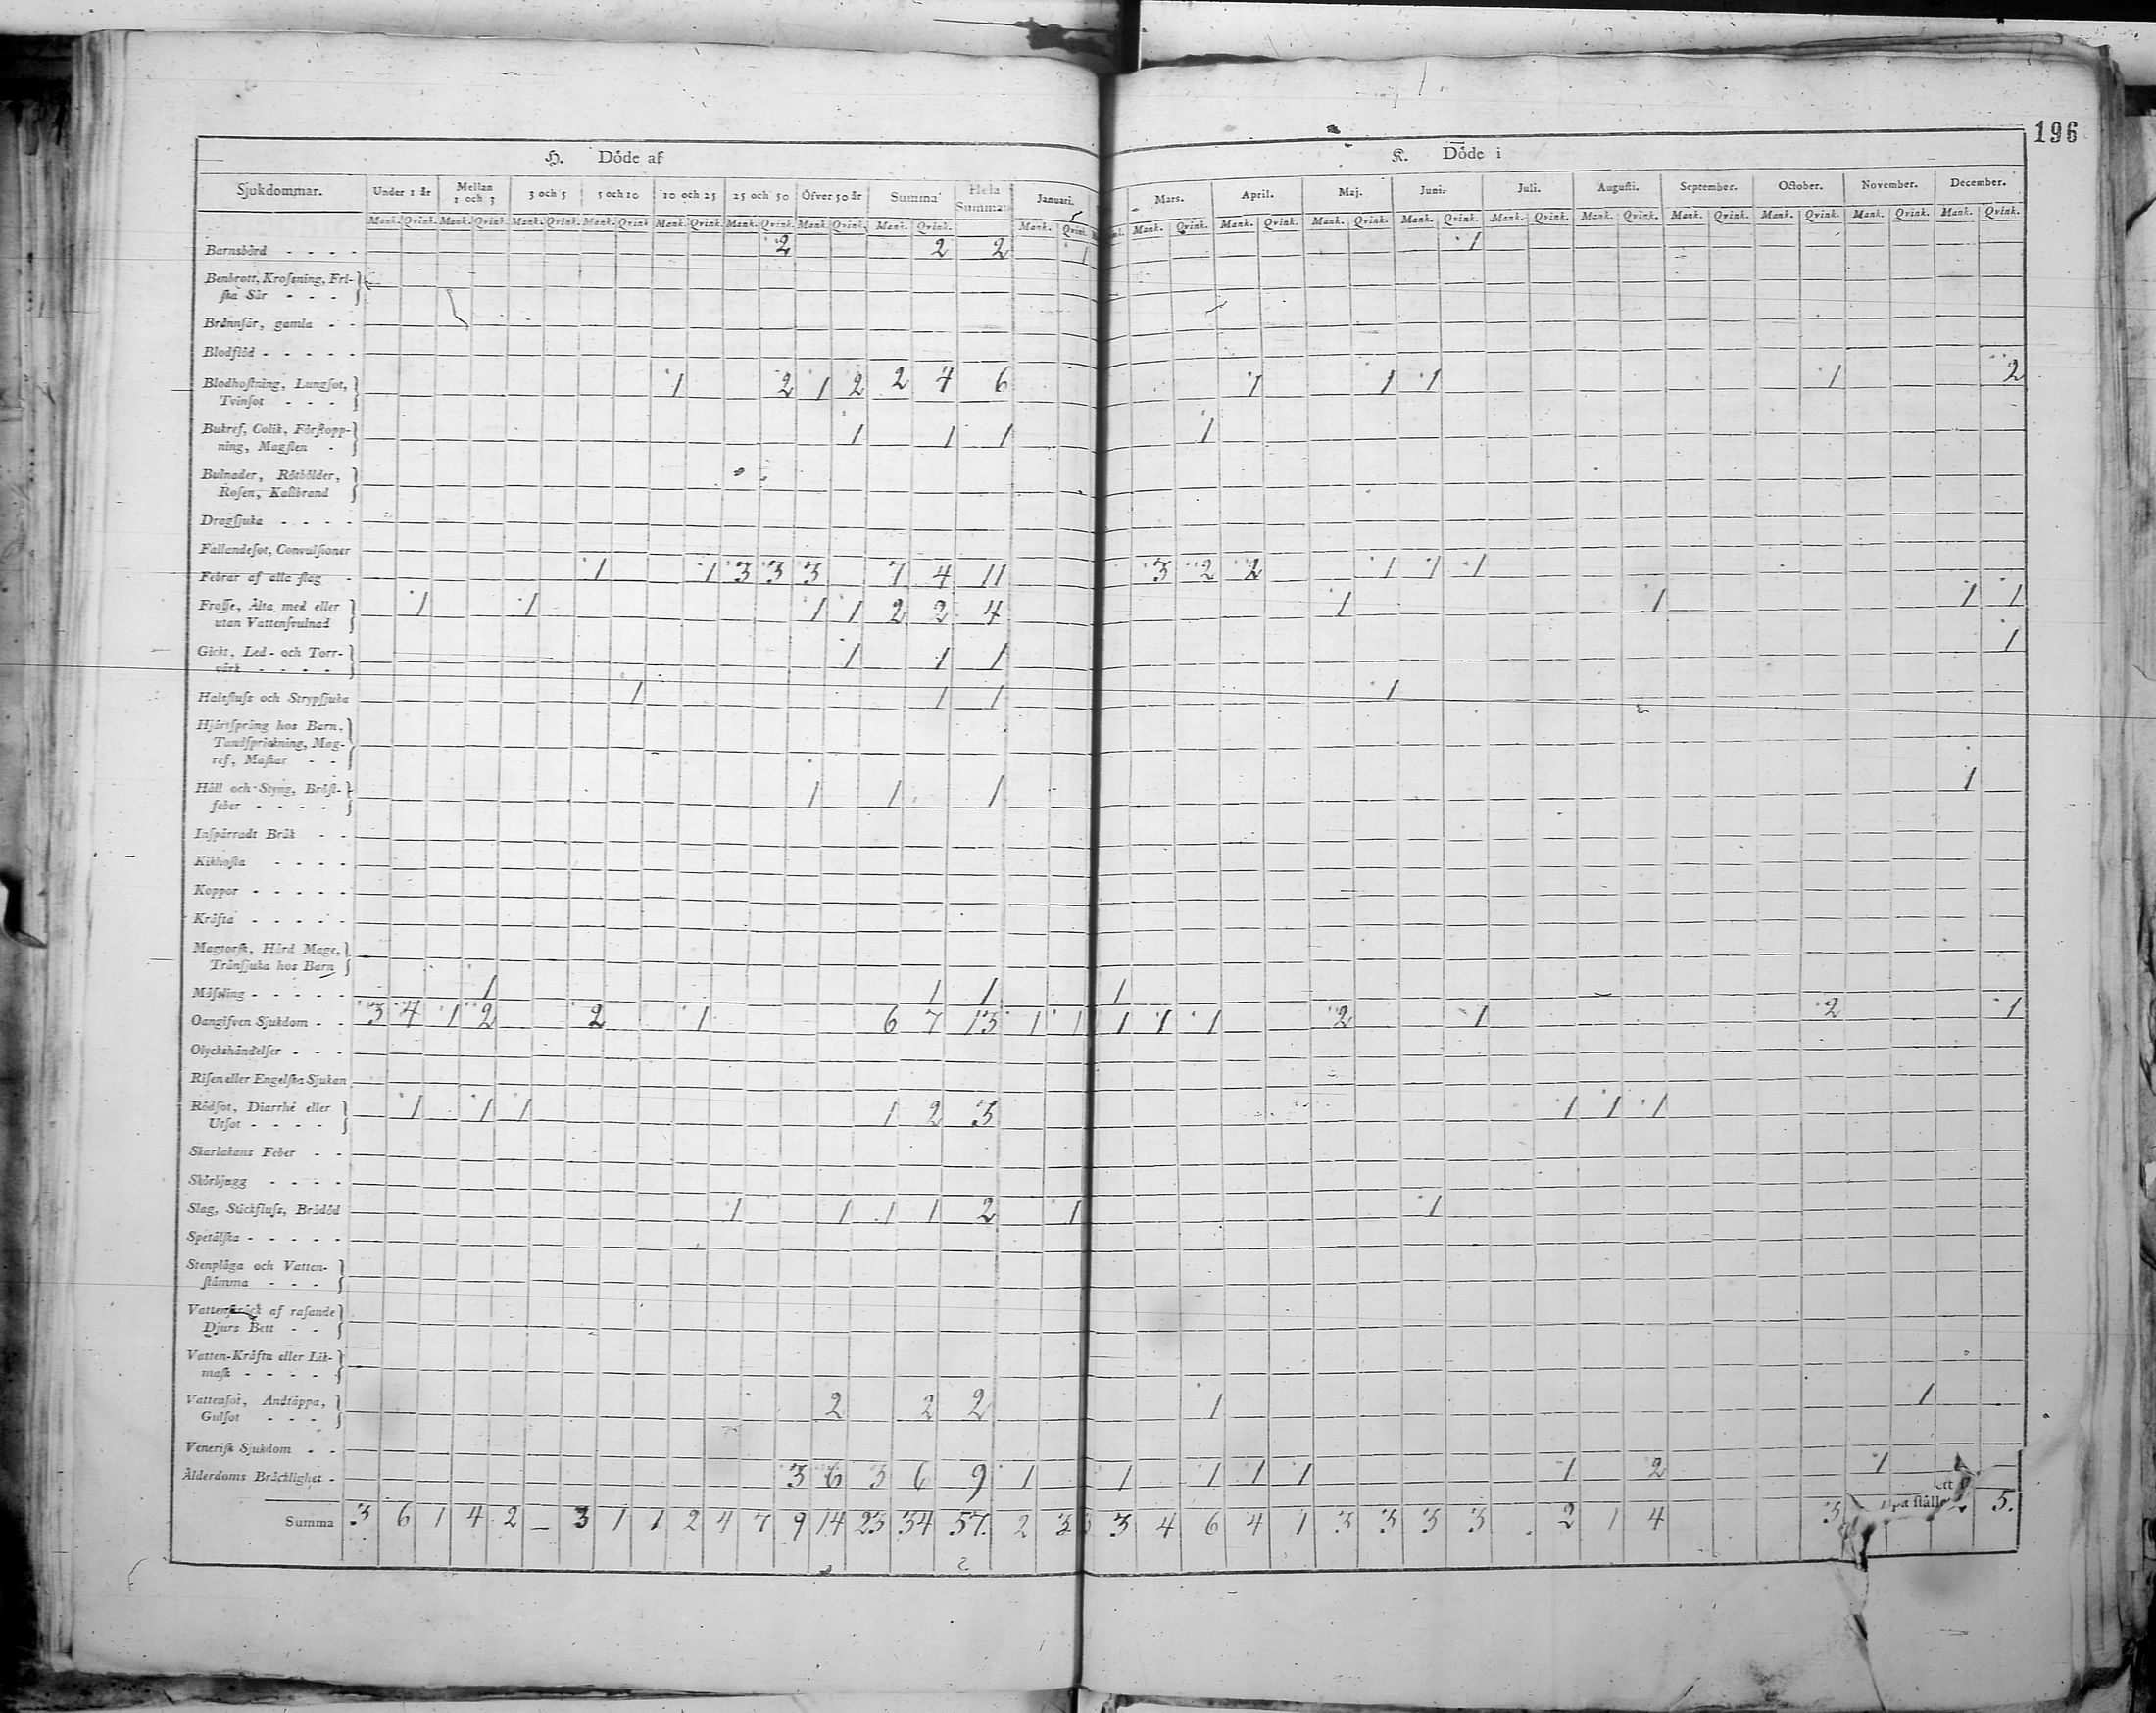 196
H. Döde af
K. Döde i
Sjukdommar. Under 1 år Mellan 1 och 3 3 och 5 5 och 10 10 och 25 25 och 50 Öfver 50 år Summa Hela Summan Januari. Mars. April. Maj. Juni. Juli. Augusti. September. October. November. December.
Mank. Qvink. Mank. Qvink. Mank. Qvink. Mank. Qvink. Mank. Qvink. Mank. Qvink. Mank. Qvink. Mank. Qvink. Mank. Qvink. Mank. Qvink. Mank. Qvink. Mank. Qvink. Mank. Qvink. Mank. Qvink. Mank. Qvink. Mank. Qvink. Mank. Qvink. Mank. Qvink. Mank. Qvink.
Barnsbörd - - - - 2 2 2 1 1
Benbrott, Krosſning, Fri-
ſka Sår - - -
Brännſår, gamla - -
Blodflöd - - - - -
Blodhoſtning, Lungſot, 1 2 1 2 2 4 6 1 1 1 1 2
Tvinſot - - -
Bukref, Colik, Förſtopp- 1 1 1 1
ning, Magſten -
Bulnader, Rötbölder,
Roſen, Kallbrand
Dragſjuka - - - -
Fallandeſot, Convulſioner
Febrar af alla ſlag - 1 1 3 3 3 7 4 11 3 2 2 1 1 1
Froſſe, Älta med eller 1 1 1 1 2 2 4 1 1 1 1
utan Vattenſvulnad
Gickt, Led- och Torr- 1 1 1 1
värk - - - -
Halsfluſs och Strypſjuka 1 1 1 1
Hjärtſpräng hos Barn,
Tandſprickning, Mag-
ref, Maſkar - -
Håll och Styng, Bröſt- 1 1 1 1
feber - - - -
Inſpärradt Bråk - -
Kikhoſta - - - -
Koppor - - - - -
Kräfta - - - - -
Magtorſk, Hård Mage,
Tränſjuka hos Barn
Mäſsling - - - - - 1 1 1 1
Oangifven Sjukdom - - 3 4 1 2 2 1 6 7 13 1 1 1 1 1 2 1 2 1
Olyckshändelſer - - -
Riſen eller Engelſka Sjukan
Rödſot, Diarrhé eller 1 1 1 1 2 3 1 1 1
Utſot - - - -
Skarlakans Feber - -
Skörbjugg - - - -
Slag, Stickfluſs, Brådöd 1 1 1 1 2 1 1
Spetälſka - - - - -
Stenplåga och Vatten-
ſtämma - - -
Vattenſkräck af raſande
Djurs Bett - -
Vatten-Kräfta eller Lik-
maſk - - - -
Vattenſot, Andtäppa, 2 2 2 1 1
Gulſot - - -
Veneriſk Sjukdom - -
Ålderdoms Bräcklighet - 3 6 3 6 9 1 1 1 1 1 1 2 1
Summa 3 6 1 4 2 — 3 1 1 2 4 7 9 14 23 34 57. 2 3 3 4 6 4 1 3 3 3 3 2 1 4 3 5.